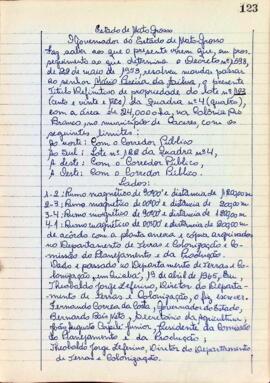 123
Estado de Mato Grosso
O Governador do Estado de Mato Grosso
Faz saber aos que o presente virem que, em pros-
seguimento ao que determina o Decreto nº 1.698,
de 22 de maio de 1953, resolveu mandar passar
ao senhor o presente
Título Definitivo de propriedade do lote nº 123
(cento e vinte e três) da Quadra nº 4 (quatro),
com a área de 24,000 ha, na Colônia Rio
Branco, no município de Cáceres, com os
seguintes limites:
Ao norte: Com o Corredor Público
Ao Sul: Lote nº da Quadra nº 4,
A deste: Com o Corredor Público,
A Oeste: Com o Corredor Público.
Lados:
1-2: Rumo magnético de e distância de
2-3: Rumo magnético de e distância de
3-4: Rumo magnético de e distância de
4-1: Rumo magnético de e distância de
de acordo com a planta anexa e cópias arquivadas
no Departamento de Terras e Colonização e Co-
missão do Planejamento e da Produção.
Dado e passado no Departamento de Terras e Co-
lonização, em Cuiabá, 19 de abril de 1965, Eu,
Theobaldo Jorge Zeferino, Diretor do Departa-
mento de Terras e Colonização, o fiz escrever.
Fernando Corrêa da Costa, Governador do Estado,
Bernardo Bais Neto, Secretário da Agricultura,
João Augusto Capilé Júnior, Presidente da Comissão
do Planejamento e da Produção;
Theobaldo Jorge Zeferino, Diretor do Departamento
de Terras e Colonização.